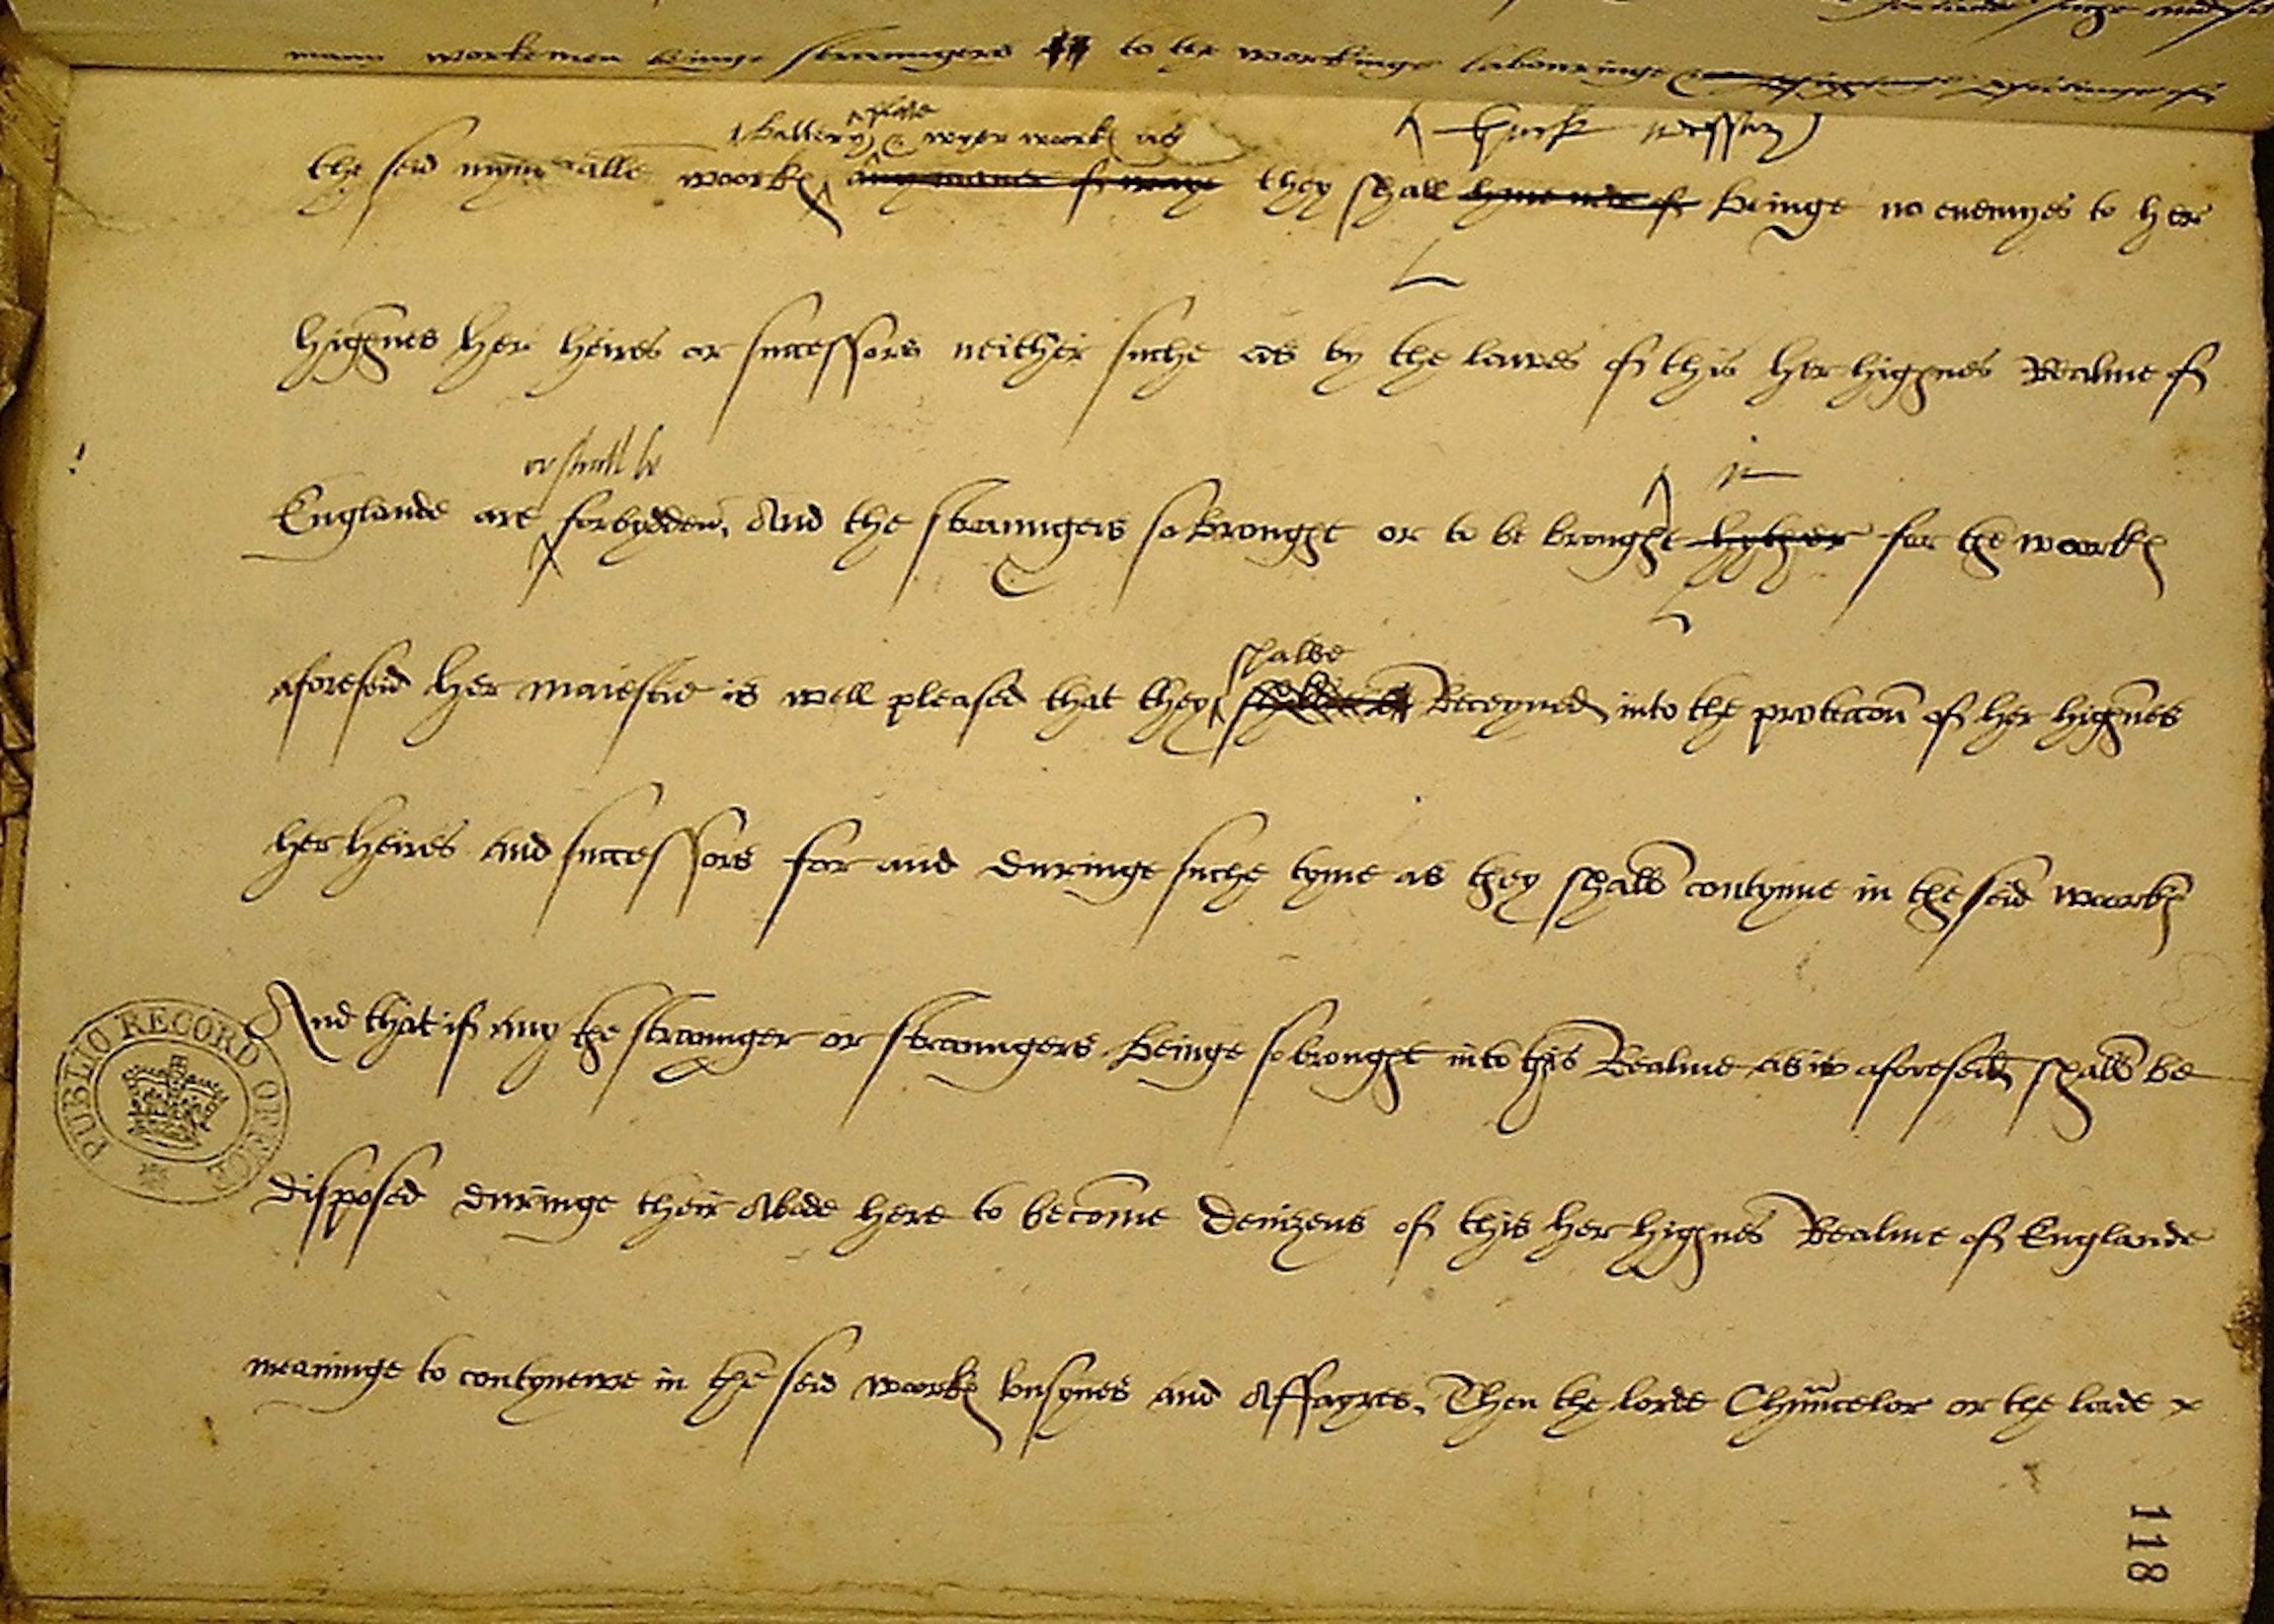 many workemen beinge straungers to be workinge labouringe
plate
battery & wyer woork as
think necessary
the seid myneralle woorkes any maner of waye they shall have nede of beinge no enemyes to her
highnes her heires or successors neither suche as by the lawes of this her highnes Realme of
or shall be
in
Englande are forbydden, And the straungers so brought or to be brought hyther for the woorkes
shalbe
aforeseid her maiestie is well pleased that they Receyued into the proteccon of her highnes
her heires and successors for and duringe suche tyme as they shall contynue in the seid woorkes
And that if any the straunger or straungers beinge so brought into this Realme as is aforeseid shall be
disposed duringe their abode here to become denizens of this her highnes Realme of Englande
meaninge to contynewe in the seid woorkes busynes and affayres. Then the lorde Chauncelor or the lorde
PUBLIC RECORD OFFICE
118